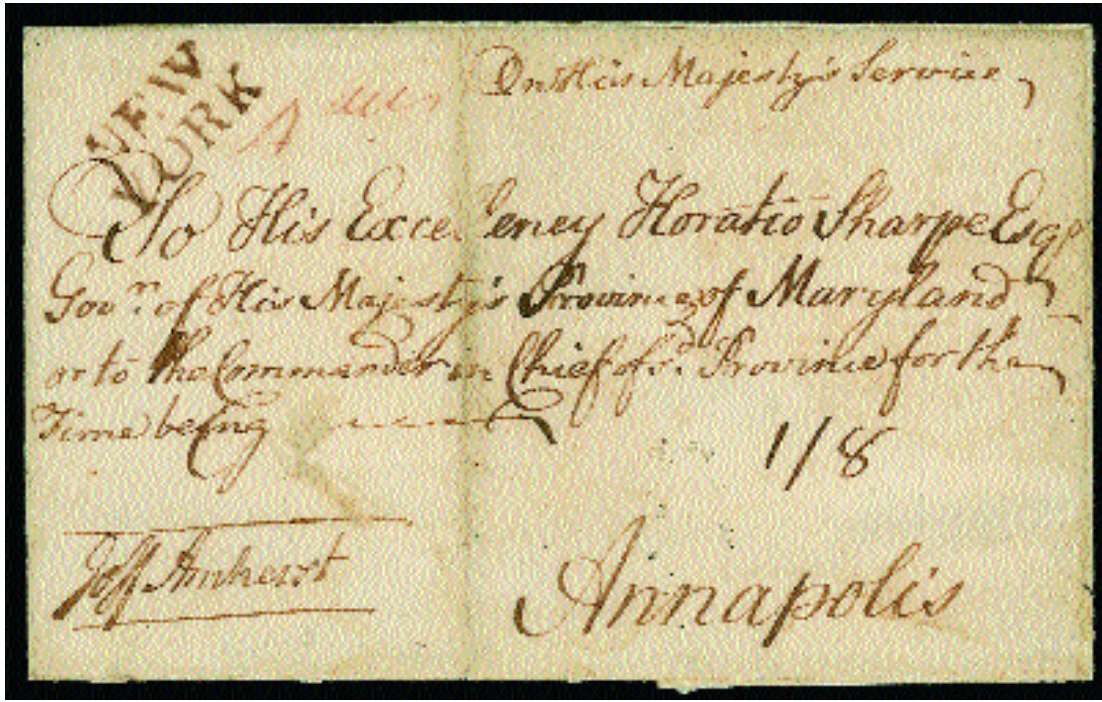 NEW
YORK
On His Majesty's Service
To His Excellency Horatio Sharpe Esqr.
Govr. of His Majesty's Province of Maryland
or to the Commander in Chief of sd. Province for the
Time being
1/8
Jeff Amherst
Annapolis